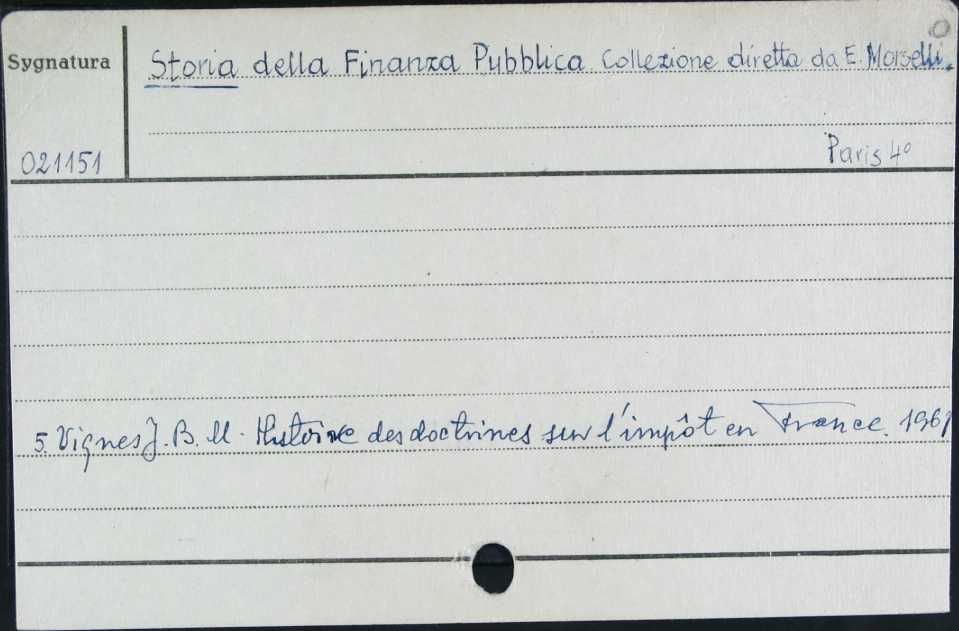 0
Sygnatura
Storia della Finanza Pubblica Collezione diretta da E. Morselli.
021151
Paris 4°
5. Vignes J. B. M. Histoire des doctrines sur l'impôt en France. 1961